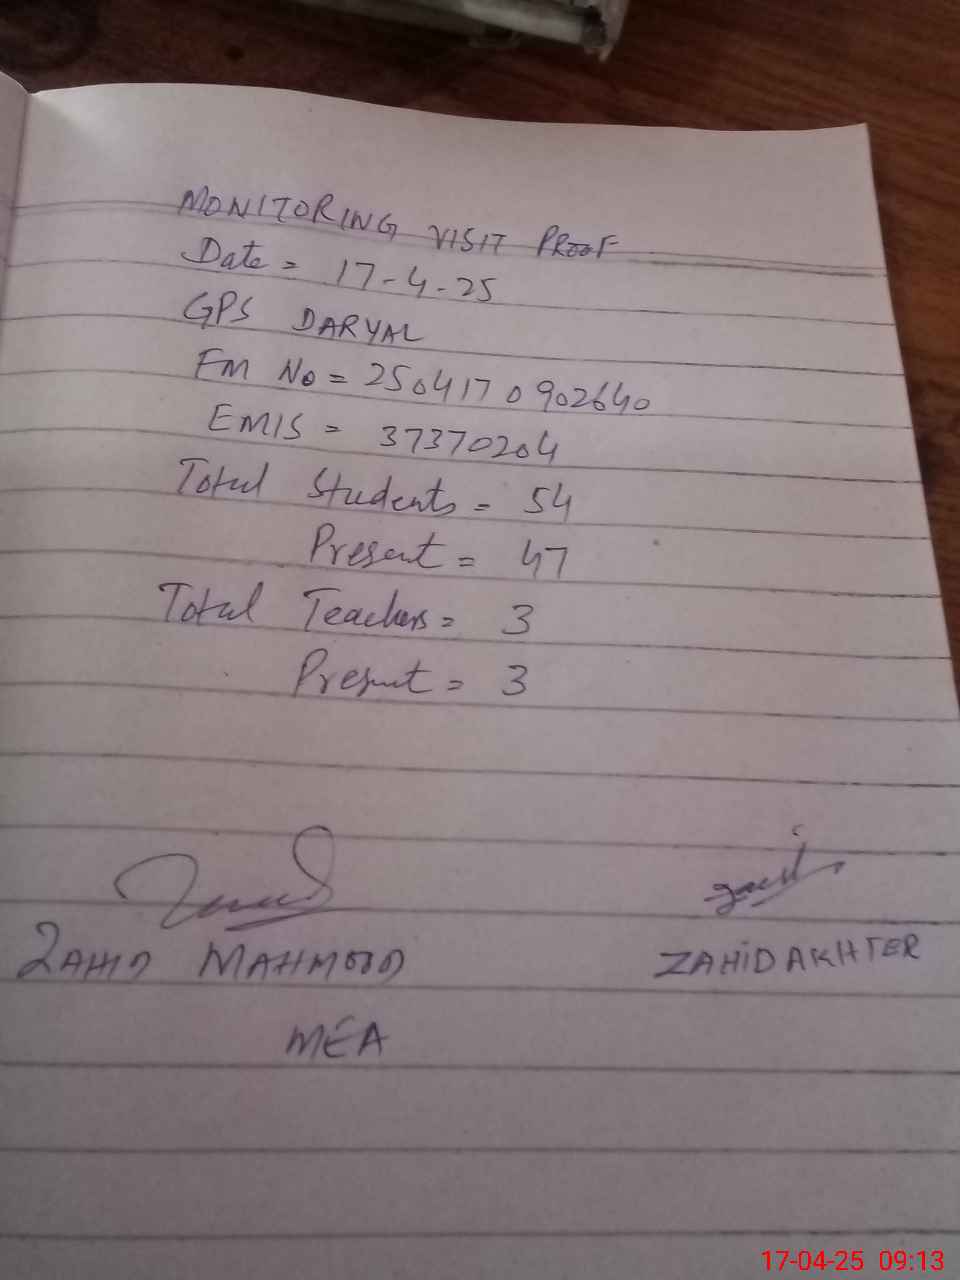 MONITORING VISIT PROOF
Date = 17-4-25
GPS DARYAL
FM No = 2504170902640
EMIS = 37370204
Total Students = 54
Present = 47
Total Teachers = 3
Present = 3
ZAHID MAHMOOD
ZAHID AKHTER
MEA
17-04-25 09:13